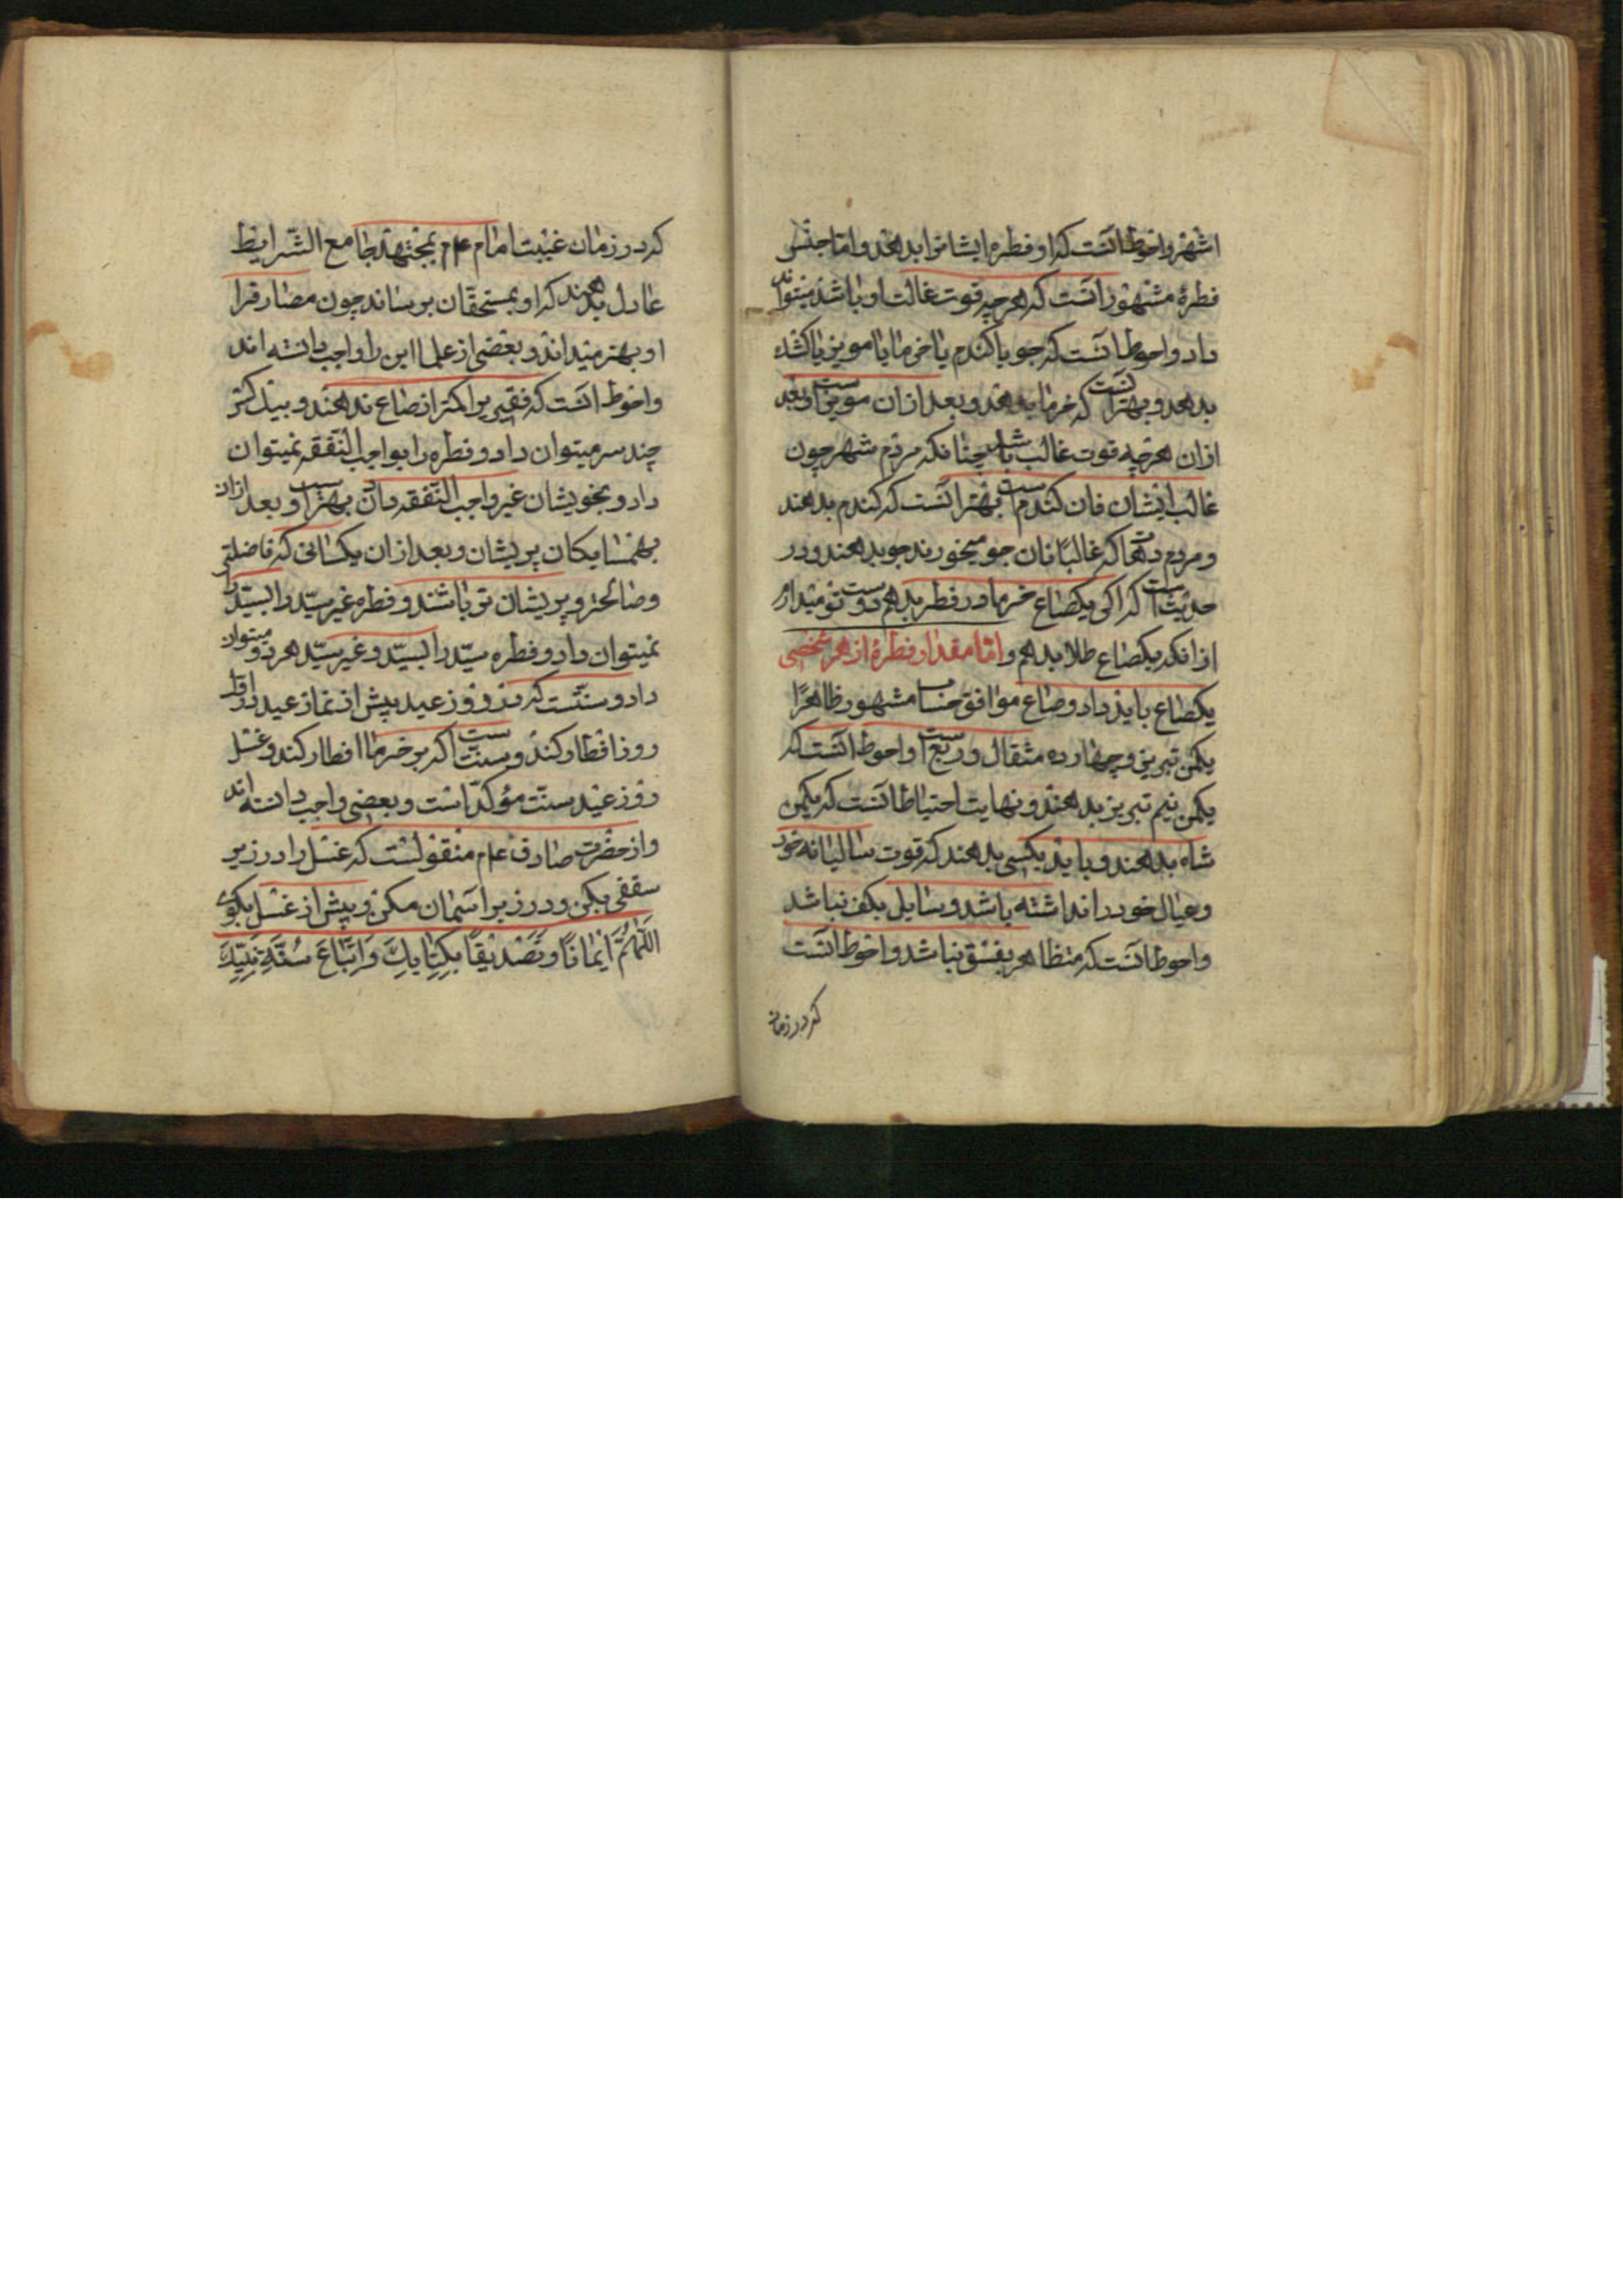 اشهر واحوط آنست که او فطره ایشانرا بدهند و اما جنس
فطرهٔ مشهور آنست که هرچه قوت غالب او باشد میتواند
داد و احوط آنست که جو یا کندم یا خرما یا مویز یا کشک
بدهد و بهتر آنست که خرما بدهند و بعد از آن مویز است و بعد
ازان هرچه قوت غالب باشد چنانکه مردم شهر چون
غالب ایشان نان کندم است بهتر آنست که کندم بدهند
و مردم دهها که غالبا نان جو میخورند جو بدهند و در
حدیث است که اکر یکصاع خرما در فطره بدهم دوست تر میدارم
ازانکه یکصاع طلا بدهم و اما مقدار فطرهٔ از هر شخصی
یکصاع باید داد و صاع موافق حساب مشهور ظاهرًا
یکمن تبریز و چهارده مثقال و ربع است و احوط آنست که
یکمن نیم تبریز بدهند و نهایت احتیاط آنست که یکمن
شاه بدهند و باید بکسی بدهند که قوت سالیانه خود
و عیال خود را نداشته باشد و سایل بکف نباشد
و احوط آنست که متظاهر بفسق نباشد و احوط آنست
که در زمان
که در زمان غیبت امام عم بمجتهد جامع الشرایط
عادل بدهند که او بمستحقان برساند چون مصارف را
او بهتر میداند و بعضی از علما این را واجب دانسته اند
و احوط آنست که فقیر را کمتر از صاع ندهند و بیک کس
چند سر میتوان داد و فطره را بواجب النفقه نمیتوان
داد و بخویشان غیر واجب النفقه دادن بهتر است و بعد ازان
بهمسایکان پریشان و بعد ازان بکسانی که فاضلتر
و صالحتر و پریشان تر باشند و فطره غیر سیّد را بسیّد را
نمیتوان داد و فطره سیّد را بسیّد و غیر سیّد هر دو میتوان
داد و سنّتست که در روز عید پیش از نماز عید در اول
روز افطار کند و سنت است اکر بر خرما افطار کند و غسل
روز عید سنّت مؤکّد است و بعضی واجب دانسته اند
و از حضرت صادق عم منقولست که غسل را در زیر
سقفی بکن و در زیر آسمان مکن و پیش از غسل بکوی
اللّٰهُمَّ اِیْمَانًا وَتَصْدِیْقًا بِکِتَابِكَ وَاتِّبَاعَ سُنَّةِ نَبِیِّكَ